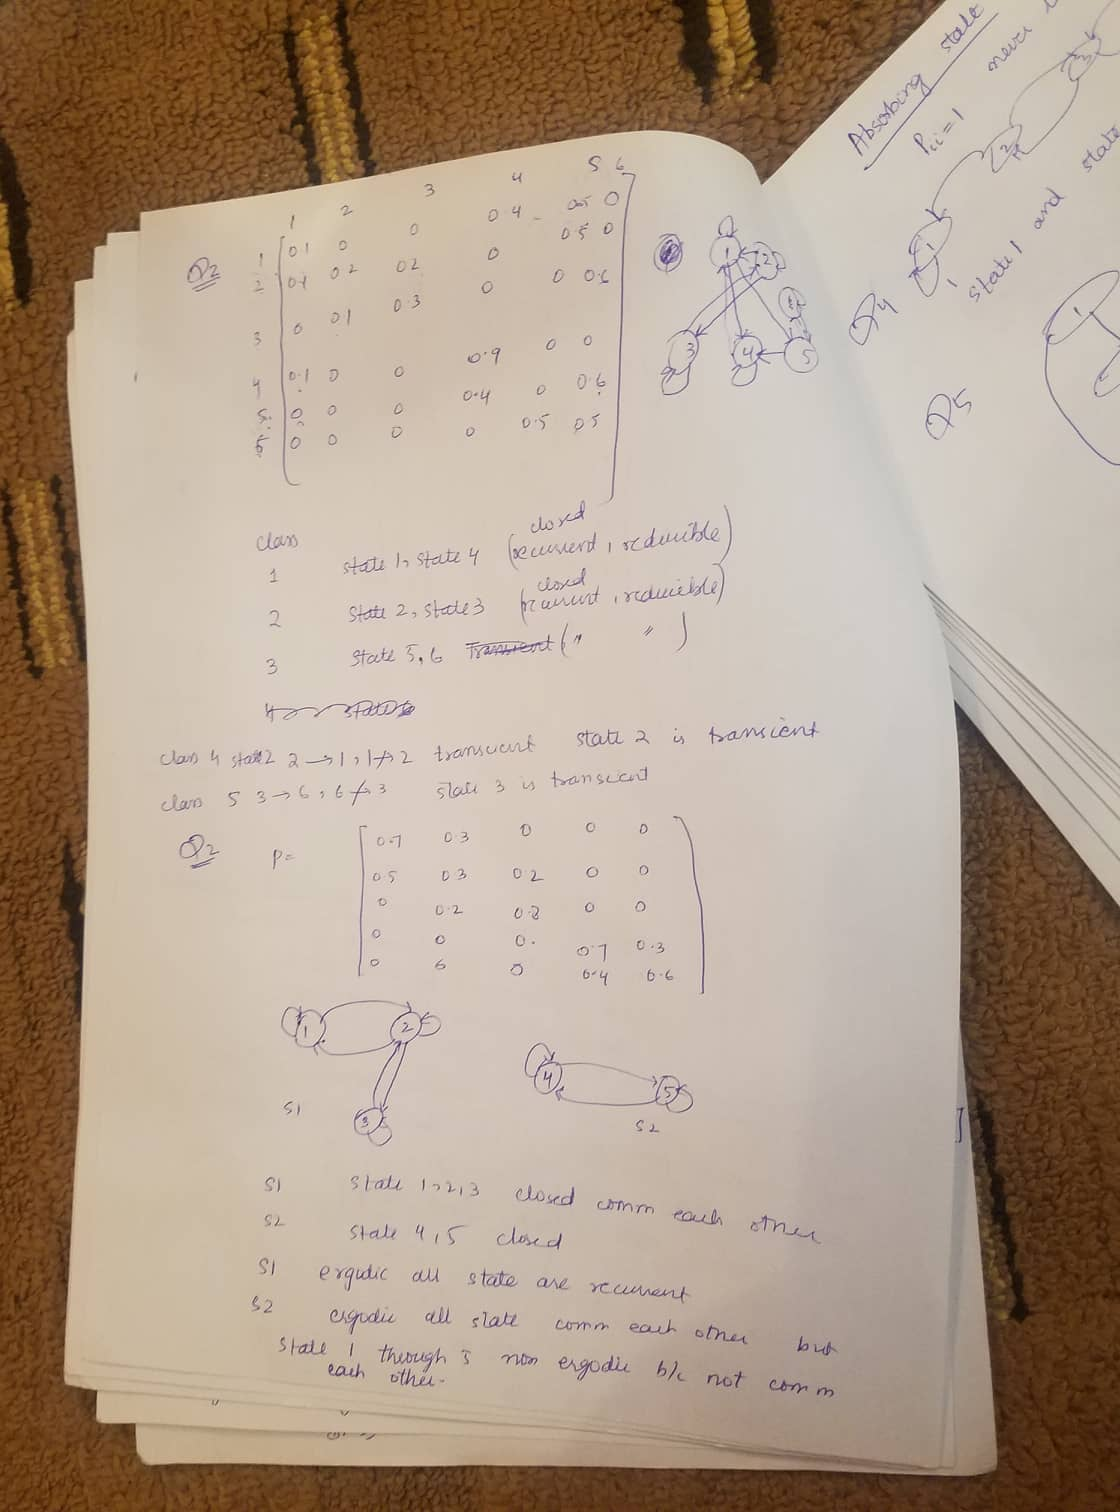 1 2 3 4 5 6
Q2
1 0.1 0 0 0.4 0.5 0
2 0.1 0.2 0.2 0 0.5 0
3 0 0.1 0.3 0 0 0.6
4 0.1 0 0 0.9 0 0
5 0 0 0 0.4 0 0.6
6 0 0 0 0 0.5 0.5
1 2 3 4 5
class
closed
1 state 1, state 4 (recurrent, reducible)
closed
2 state 2, state 3 (recurrent, reducible)
3 state 5, 6 transient (" ")
4 state 6
class 4 state 2 2 → 1, 1 ↛ 2 transient state 2 is transient
class 5 3 → 6, 6 ↛ 3 state 3 is transient
Q2 P=
0.7 0.3 0 0 0
0.5 0.3 0.2 0 0
0 0.2 0.8 0 0
0 0 0. 0.7 0.3
0 0 0 0.4 0.6
1 2 3 S1
4 5 S2
S1 state 1, 2, 3 closed comm each other
S2 state 4, 5 closed
S1 ergodic all state are recurrent
S2 ergodic all state comm each other but
state 1 through 5 non ergodic b/c not comm
each other.
Absorbing state
Pii = 1 never
1 2 3
Q4
state 1 and state
Q5
1